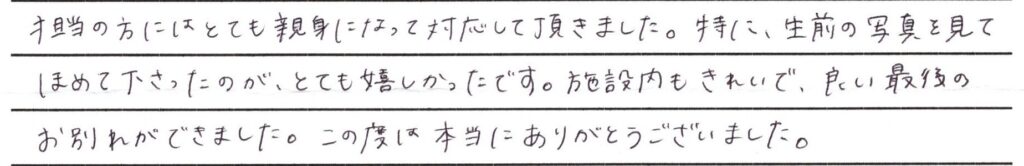 担当の方にはとても親身になって対応して頂きました。特に、生前の写真を見て
ほめて下さったのが、とても嬉しかったです。施設内もきれいで、良い最後の
お別れができました。この度は本当にありがとうございました。